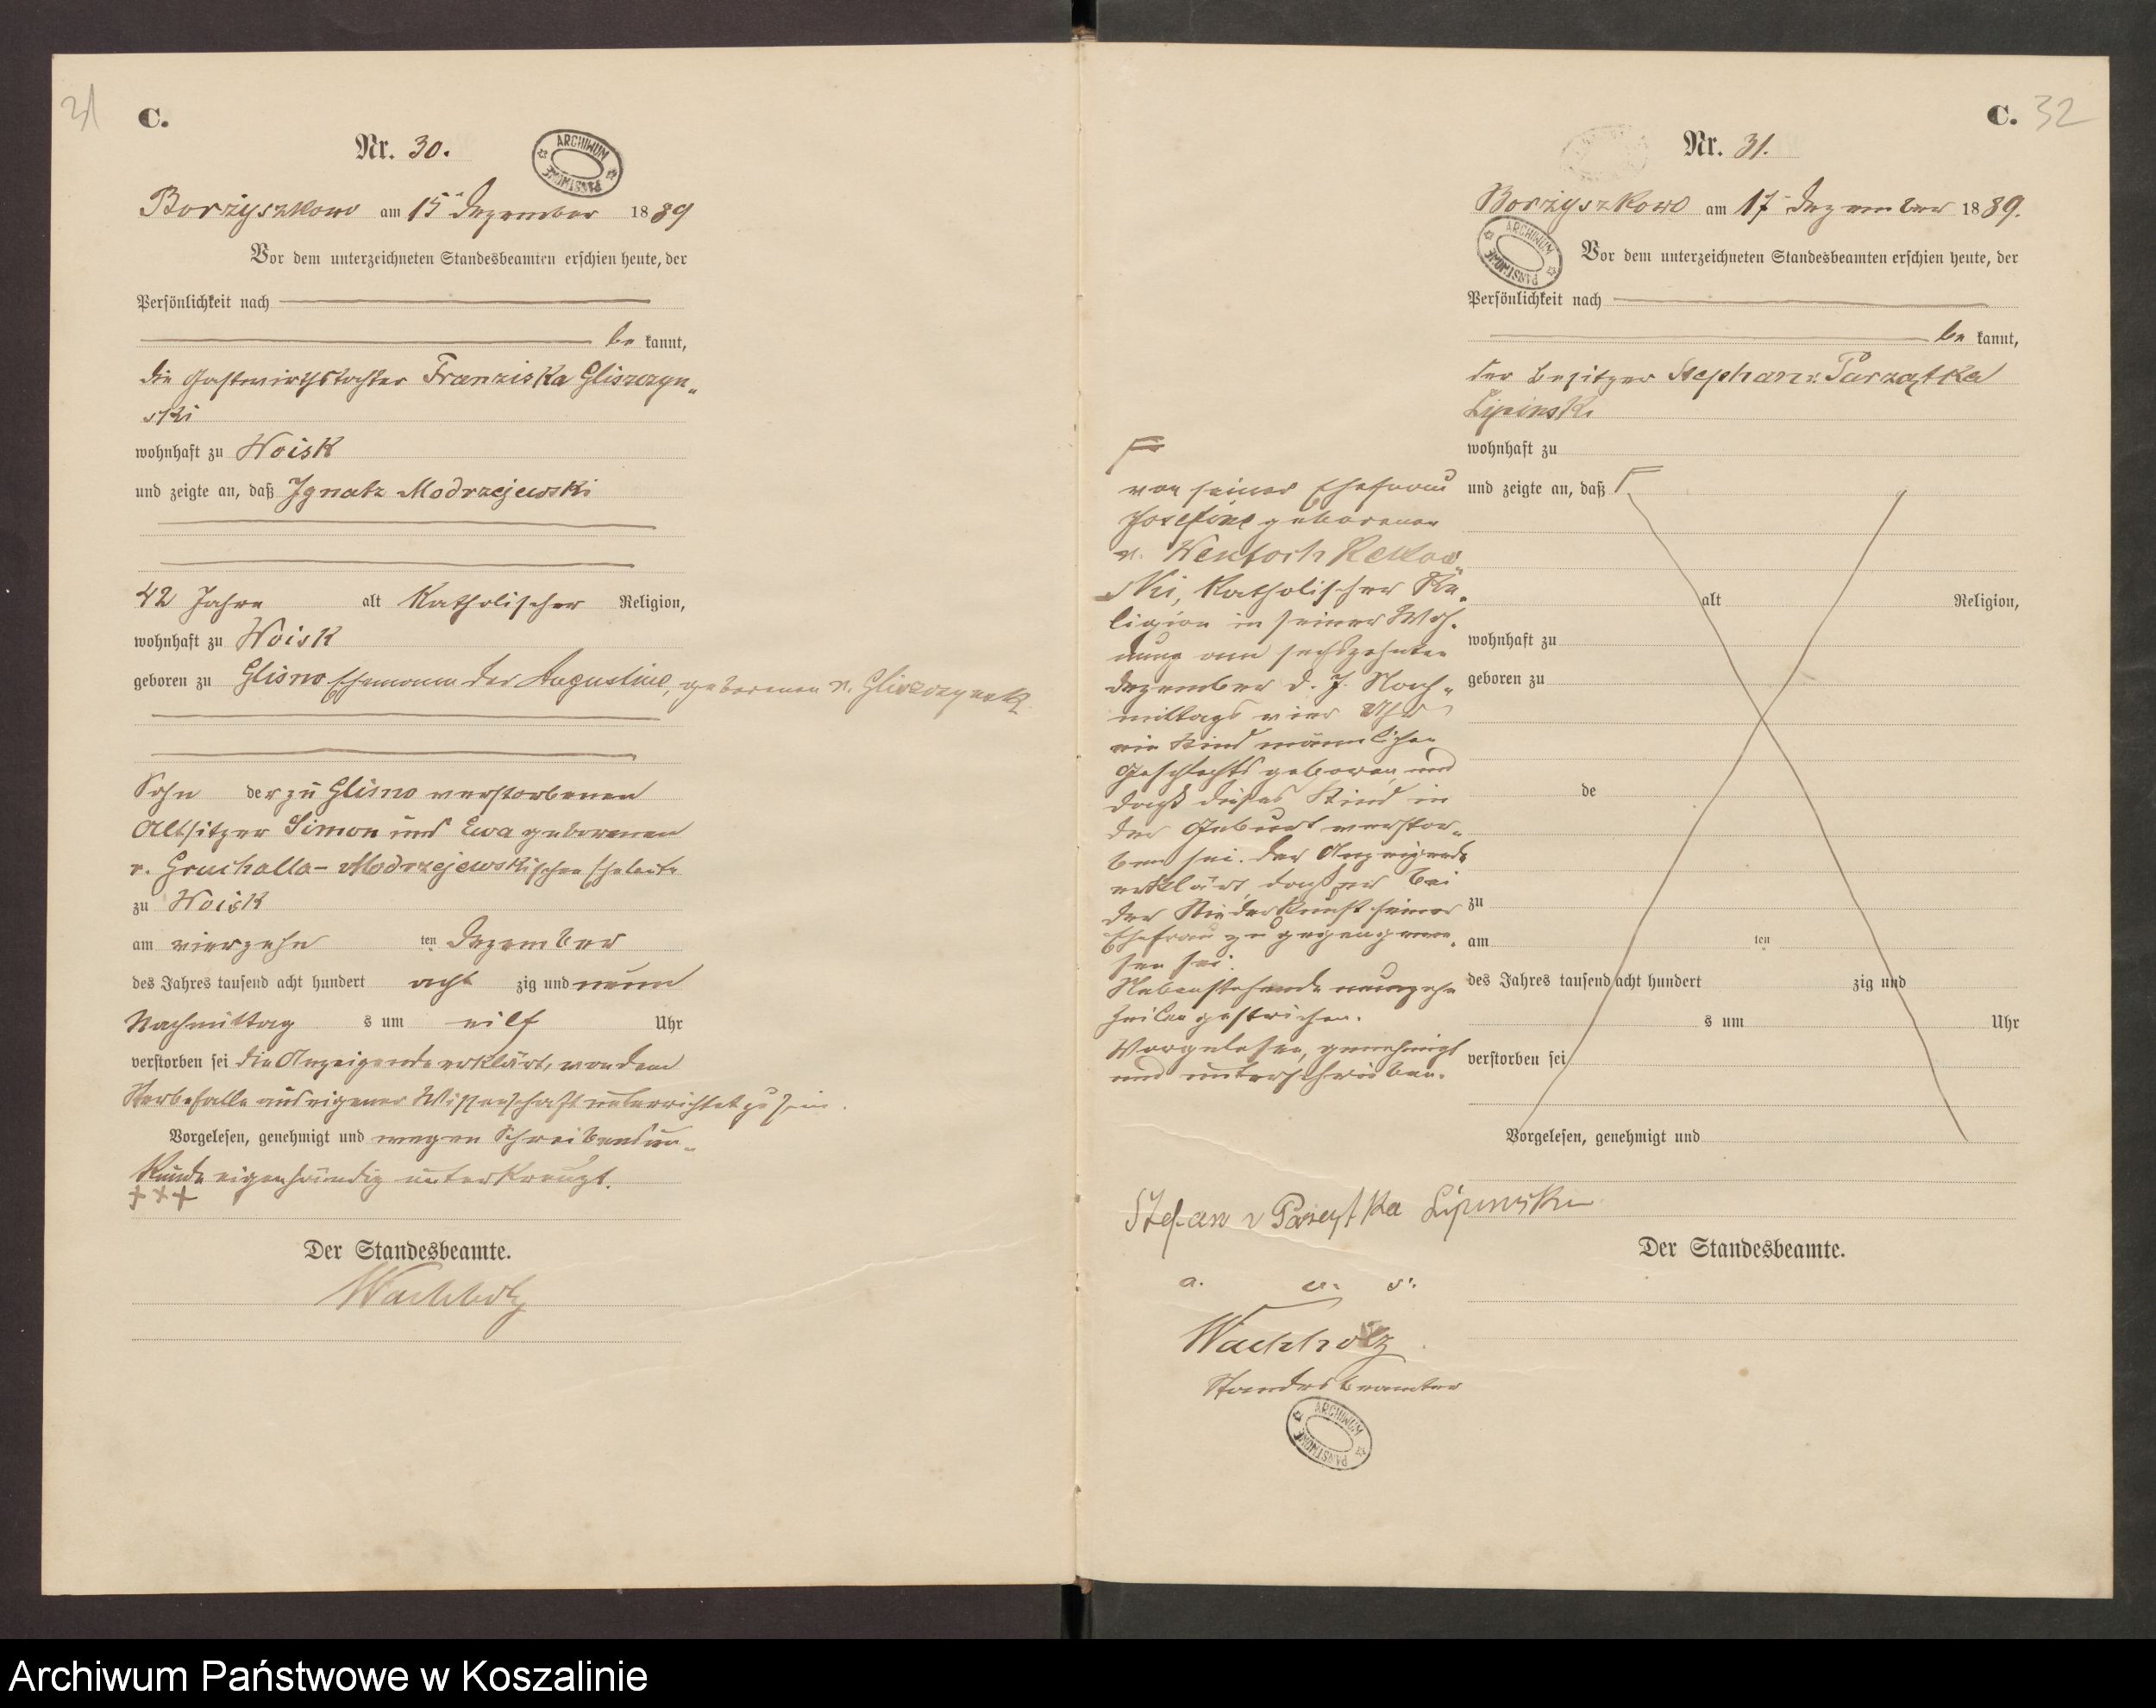 31
C.
Nr. 30.
ARCHIWUM PAŃSTWOWE
Borzyszkowo am 15ᵗ Dezember 1889
Vor dem unterzeichneten Standesbeamten erschien heute, der
Persönlichkeit nach
be kannt,
die Gastwirthstochter Franziska Gliszczyn-
ski
wohnhaft zu Woisk
und zeigte an, daß Ignatz Modrzejewski
42 Jahre alt Katholischer Religion,
wohnhaft zu Woisk
geboren zu Glisno Ehemann der Augustine, geborenen v. Gliszczynski
Sohn der zu Glisno verstorbenen
Altsitzer Simon und Ewa geborenen
v. Gruchalla-Modrzejewskischen Eheleute
zu Woisk
am vierzehn ten Dezember
des Jahres tausend acht hundert acht zig und neun
Nachmittag s um eilf Uhr
verstorben sei die Anzeigende erklärt, von dem
Sterbefalle aus eigener Wissenschaft unterrichtet zu sein.
Vorgelesen, genehmigt und wegen Schreibensun-
kunde eigenhändig unterkreuzt.
+ + +
Der Standesbeamte.
Wachholz
C. 32
Nr. 31.
Borzyszkowo am 17ᵗ Dezember 1889.
ARCHIWUM PAŃSTWOWE
Vor dem unterzeichneten Standesbeamten erschien heute, der
Persönlichkeit nach
be kannt,
der Besitzer Stephan v. Parzątka
Lipinski
wohnhaft zu
und zeigte an, daß
alt Religion,
wohnhaft zu
geboren zu
de
zu
am ten
des Jahres tausend acht hundert zig und
s um Uhr
verstorben sei
Vorgelesen, genehmigt und
von seiner Ehefrau
Josefine geborenen
v. Wentoch Rekow-
ski, Katholischer Re-
ligion in seiner Woh-
nung am sechszehnten
Dezember d. J. Nach-
mittags vier Uhr
ein Kind männlichen
Geschlechts geboren und
daß dieses Kind in
der Geburt verstor-
ben sei. Der Anzeigende
erklärt, daß er bei
der Niederkunft seiner
Ehefrau zugegen gewe-
sen sei.
Nebenstehende neunzehn
Zeilen gestrichen.
Vorgelesen, genehmigt
und unterschrieben.
Stefan v Parzytka Lipinski
Der Standesbeamte.
a. u. s.
Wachholz
Standesbeamter
ARCHIWUM PAŃSTWOWE
Archiwum Państwowe w Koszalinie